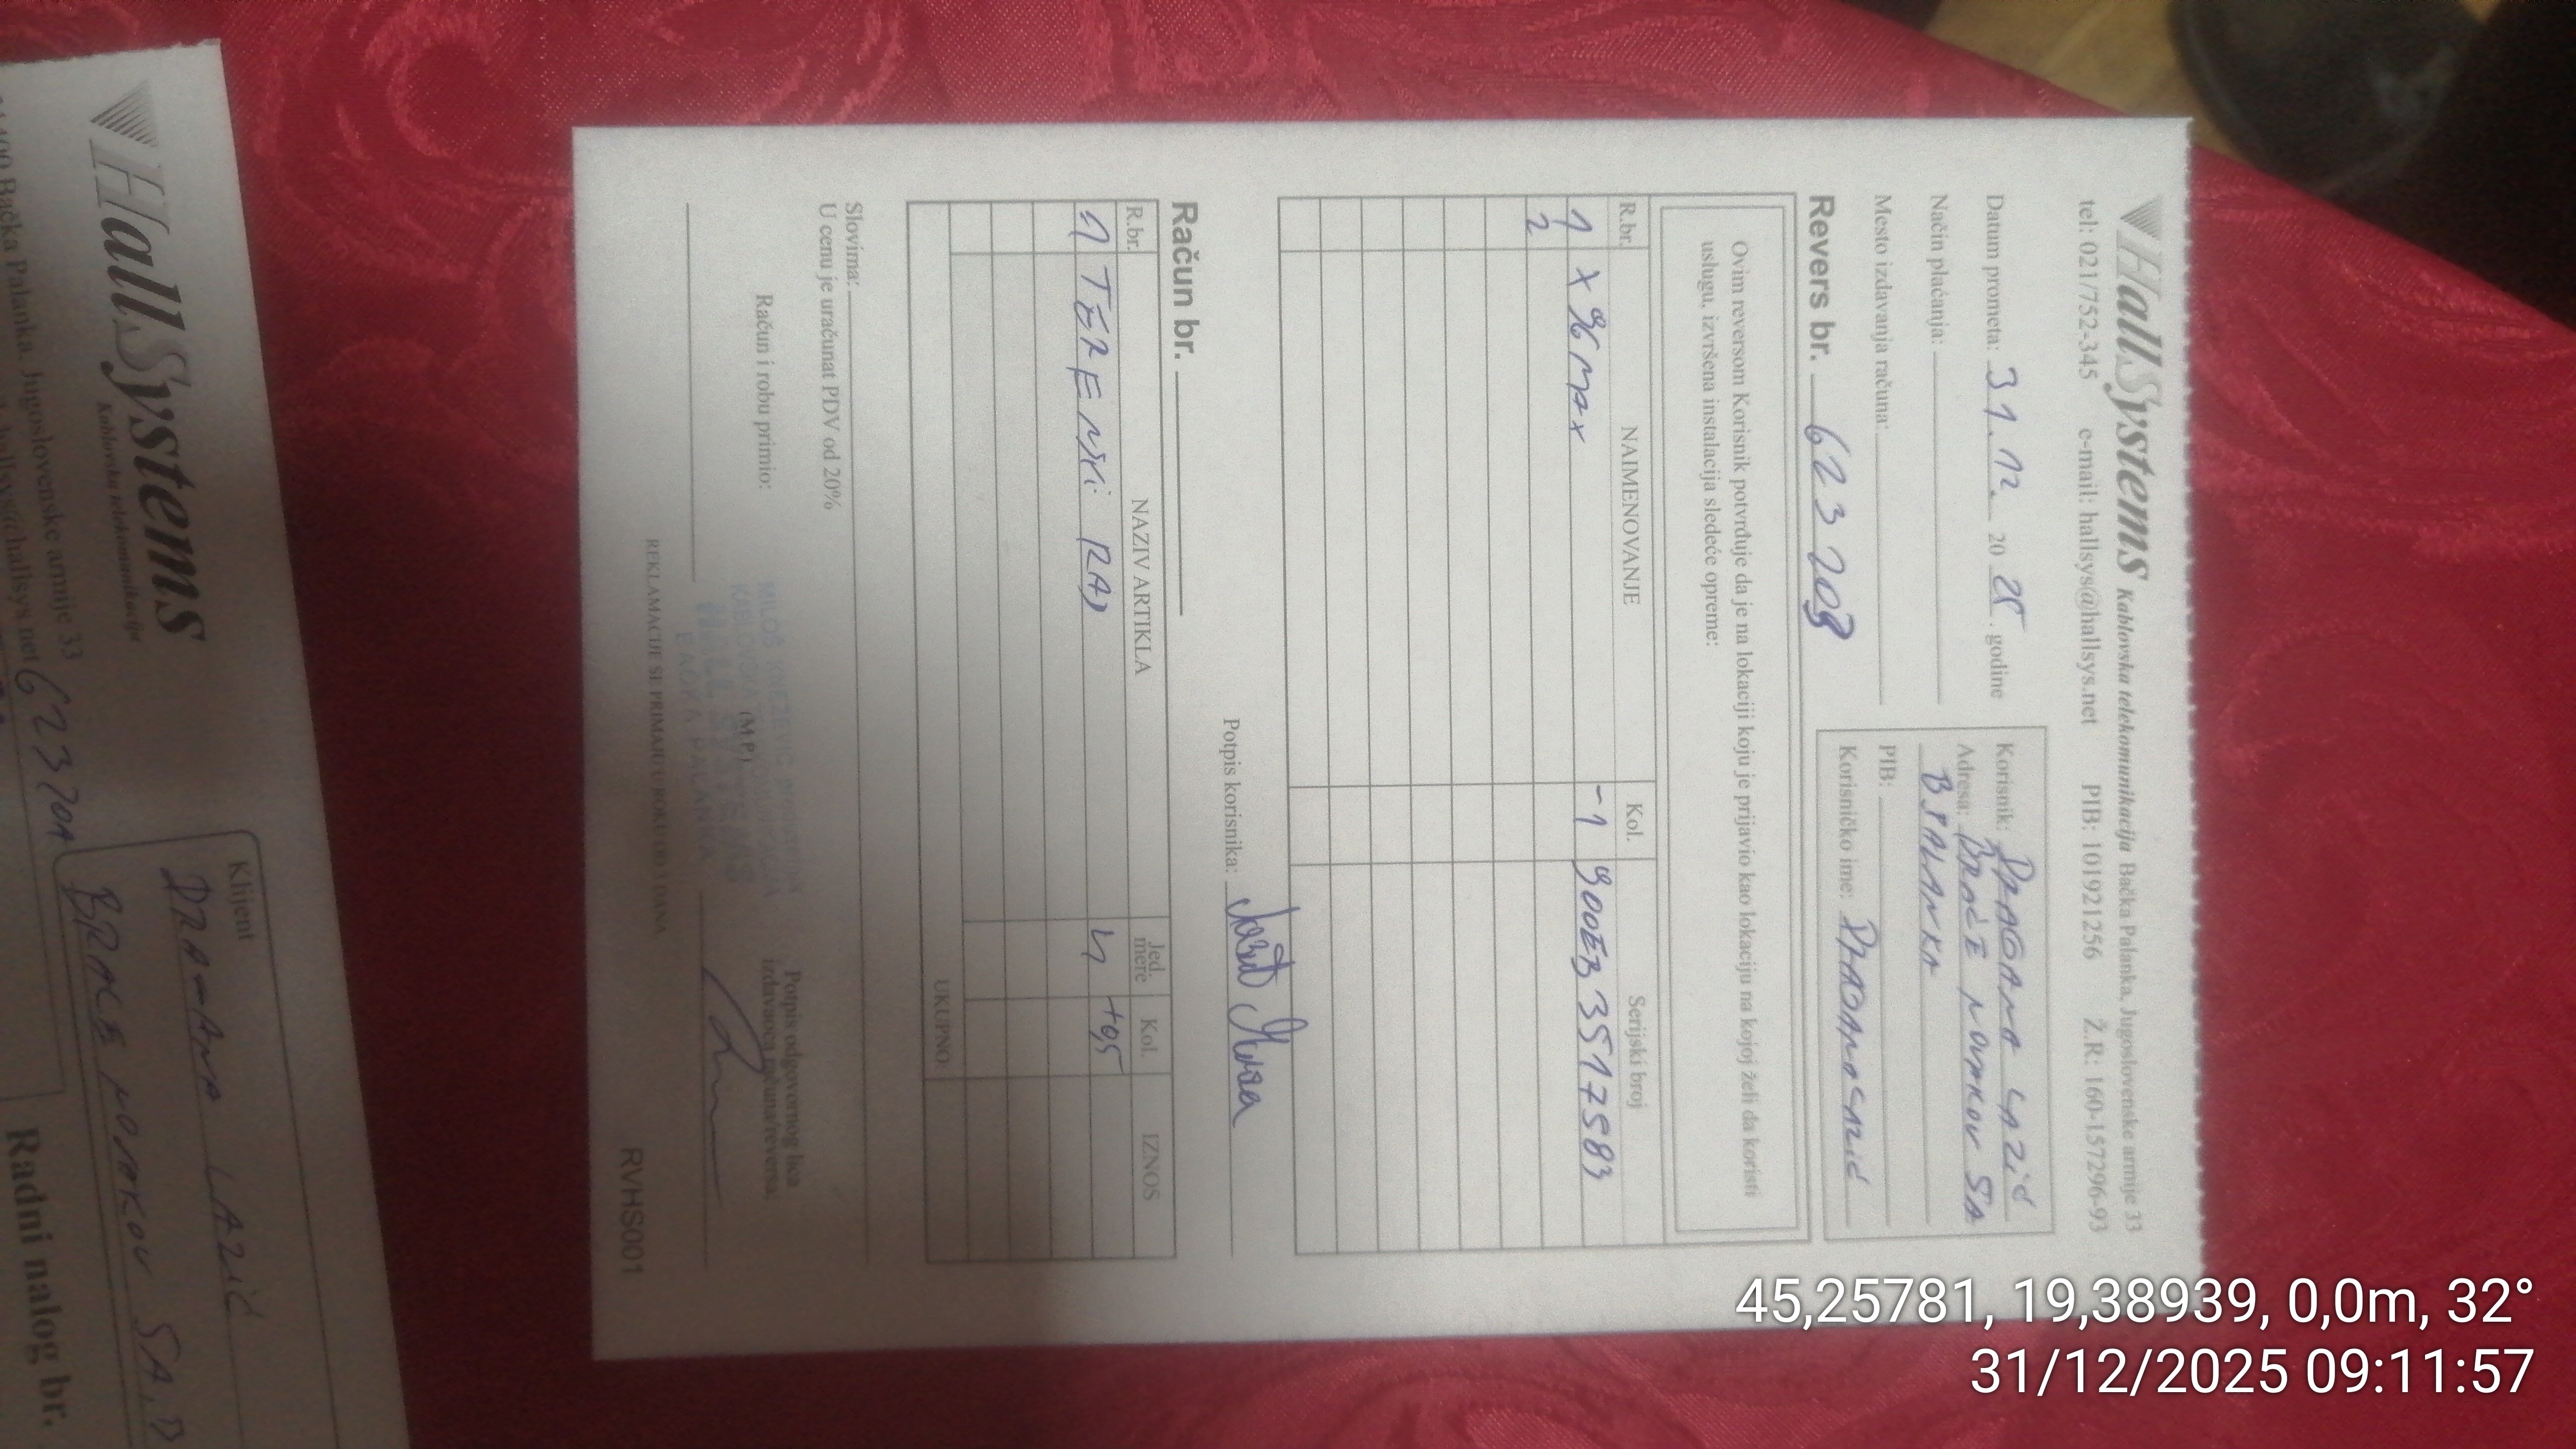 HallSystems Kablovska telekomunikacija Bačka Palanka, Jugoslovenske armije 33
tel: 021/752-345 e-mail: hallsys@hallsys.net PIB: 101921256 Ž.R: 160-157296-93
Datum prometa: 31.12. 2025. godine
Način plaćanja:
Mesto izdavanja računa:
Korisnik: DRAGANA LAZIĆ
Adresa: BRAĆE NOVAKOV 5A
B PALANKA
PIB:
Korisničko ime: DRAGANALAZIĆ
Revers br. 623208
Ovim reversom Korisnik potvrđuje da je na lokaciji koju je prijavio kao lokaciju na kojoj želi da koristi
uslugu, izvršena instalacija sledeće opreme:
R.br. NAIMENOVANJE Kol. Serijski broj
1 X96MAX -1 900EB3517583
2
Potpis korisnika:
Račun br.
R.br. NAZIV ARTIKLA Jed. mere Kol. IZNOS
1 TERENSKI RAD h +0,5
UKUPNO:
Slovima:
U cenu je uračunat PDV od 20%
Račun i robu primio:
(M.P)
Potpis odgovornog lica
izdavaoca računa/reversa:
REKLAMACIJE SE PRIMAJU U ROKU OD 3 DANA
RVHS001
HallSystems
Kablovska telekomunikacija
Bačka Palanka, Jugoslovenske armije 33
hallsys@hallsys.net
Klijent
DRAGANA LAZIĆ
BRAĆE NOVAKOV 5A,
Radni nalog br.
45,25781, 19,38939, 0,0m, 32°
31/12/2025 09:11:57